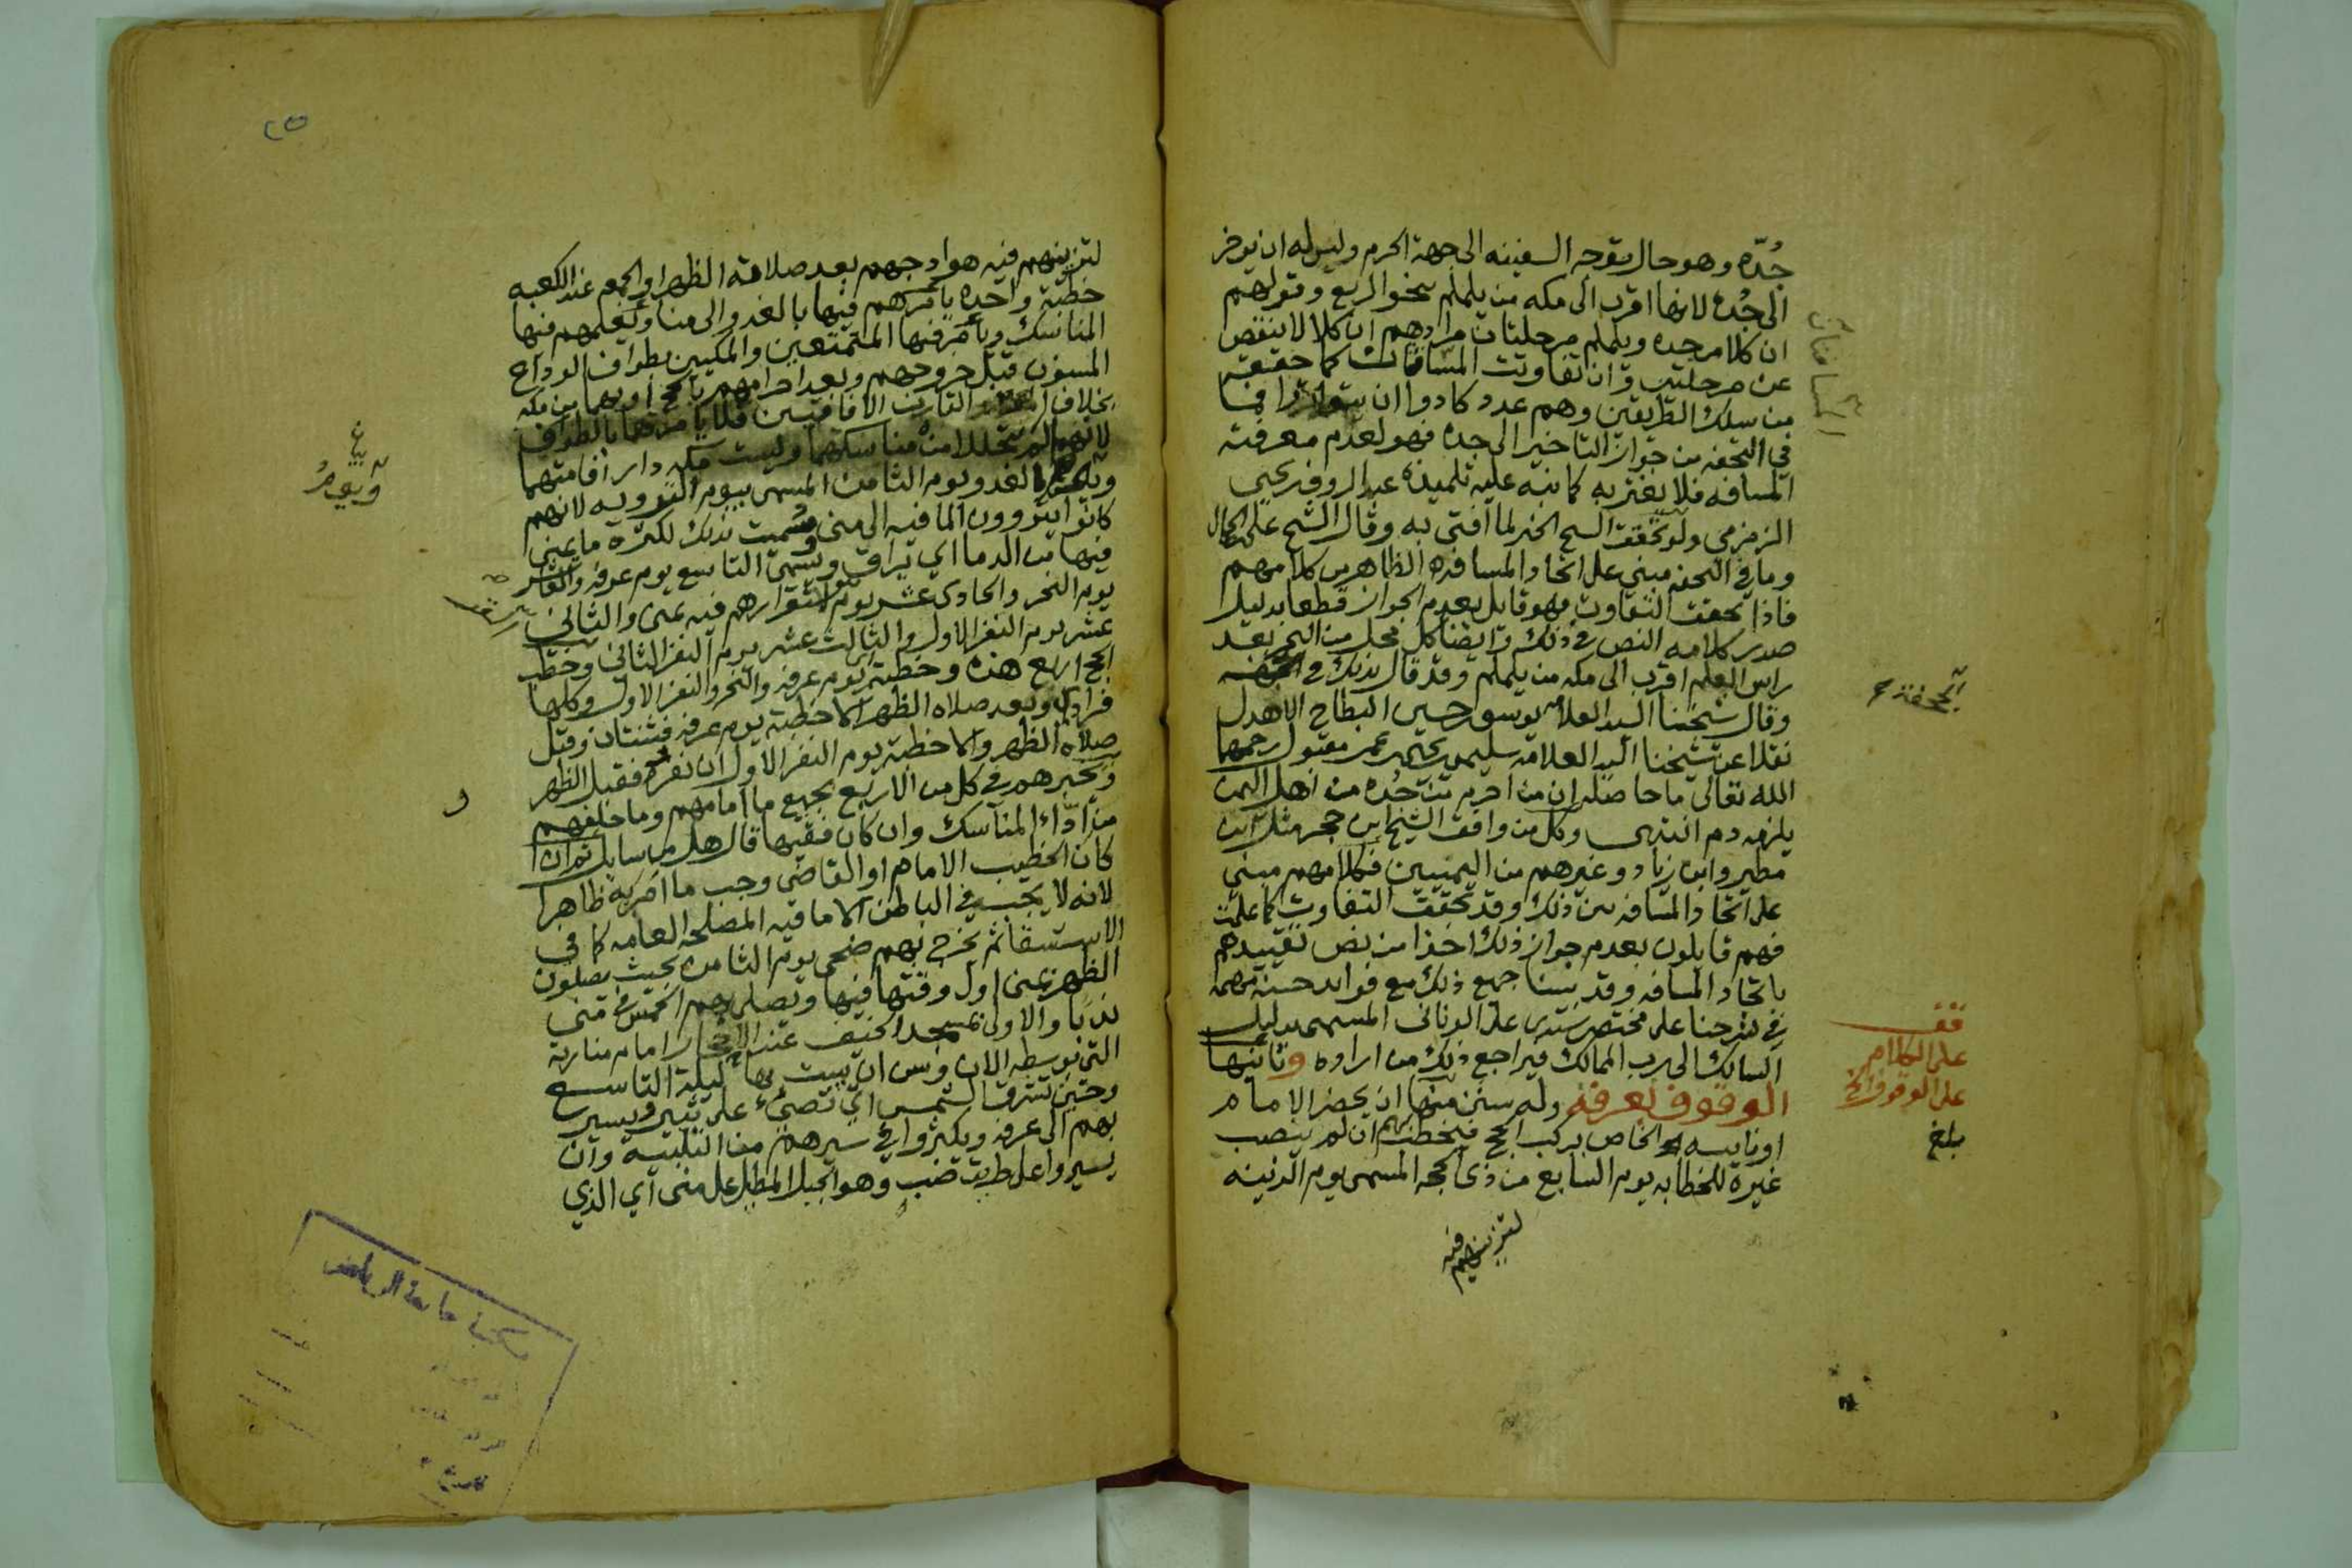 جُدّه وهو حال توجه السفينه الى جهة الحرم وليس له ان يوخر
الى جُده لانها اقرب الى مكه من يلملم بنحو الربع وقولهم
ان كلا من جده ويلملم مرحلتان مرادهم ان كلا لا ينقص
عن مرحلتين وان تفاوتت المسافتان كما حققه
من سلك الطريقين وهم عدد كادوا ان يتواتروا فما
في التحفه من جواز التاخير الى جده فهو لعدم معرفته
المسافه فلا يغتر به كما نبه عليه تلميذه عبد الروف بن يحيى
الزمزمي ولو تحققت الشيخ الخبر لما افتى به وقال الشيخ علي الجمال
وما في التحفه مبني على اتحاد المسافه الظاهر من كلامهم
فاذا تحقق التفاوت فهو قايل بعدم الجواز قطعا بدليل
صدر كلامه النص في ذلك وايضا كل محل من البحر بعد
راس العلم اقرب الى مكه من يلملم وقد قال بذلك في التحفه
وقال شيخنا السيد العلامه يوسف بن حسين البطاح الاهدل
نقلا عن شيخنا السيد العلامه سليمن بن يحيى بن عمر مقبول رحمهما
الله تعالى ما حاصله ان من احرم من جُده من اهل اليمن
يلزمه دم انتهى وكل من وافق الشيخ ابن حجر مثل ابن
مطير وابن زياد وغيرهم من اليمنيين فكلامهم مبني
على اتحاد المسافه بين ذلك وقد تحقق التفاوت كما علمت
فهم قايلون بعدم جواز ذلك اخذا من نص تقييدهم
باتحاد المسافه وقد بينا جميع ذلك مع فوايد حسنه مهمه
في شرحنا على مختصر سيدي علي الوناني المسمى بدليل
السالك الى رب الممالك فيراجع ذلك من اراده وثانيها
الوقوف بعرفة وله سنن منها ان يحضر الامام
او نايبه الخاص بركب الحج فيخطب بهم ان لم ينصب
غيره للخطابه يوم السابع من ذي الحجه المسمى يوم الزينه
لتزينهم فيه
المسافتان
التحفه
قف
على الكلام
على الوقوف الخ
بلغ
٢٥
لتزينهم فيه هوادجهم بعد صلاة الظهر او الجمعه عند الكعبه
خطبة واحده يامرهم فيها بالغدو الى منا ويعلمهم فيها
المناسك ويامر فيها المتمتعين والمكيين بطواف الوداع
المسنون قبل خروجهم وبعد احرامهم بالحج او بهما من مكه
بخلاف المفرد والقارن الافاقيين فلا يامرهما بالطواف
لانهما لم يتحللا من مناسكهما وليست مكه دار اقامتهما
الغدو يوم الثامن المسمى بيوم الترويه لانهم
كانوا يتروون الما فيه الى منى وسُميت بذلك لكثرة ما يمنى
فيها من الدما اي يراق ويسمى التاسع يوم عرفه والعاشر
يوم النحر والحادي عشر يوم القر لاستقرارهم فيه بمنى والثاني
عشر يوم النفر الاول والثالث عشر يوم النفر الثاني وخطب
الحج اربع هذه وخطبة يوم عرفه والنحر والنفر الاول وكلها
فرادى وبعد صلاه الظهر الا خطبة يوم عرفه فثنتان وقبل
صلاه الظهر والا خطبة يوم النفر الاول ان نفر فقبل الظهر
ويخبرهم في كل من الاربع بجميع ما امامهم وما خلفهم
من اداء المناسك وان كان فقيها قال هل من سايل ثم ان
كان الخطيب الامام او القاضي وجب ما امر به ظاهرا
لانه لا يجب في الباطن الا ما فيه المصلحه العامه كما في
الاستسقا ثم يخرج بهم ضحى يوم الثامن بحيث يصلون
الظهر بمنى اول وقتها فيها ويصلى بهم الخمس في منى
ندبا والاولى بمسجد الخيف عند الاحجار امام منارته
التي بوسطه الان وسن ان يبيت بها ليلة التاسع
وحين تشرق الشمس اي تضيء على ثبير ويسير
بهم الى عرفه ويكثروا في سيرهم من التلبيه وان
يسيروا على طريق ضب وهو الجبل المطل على منى اي الذي
مكتبة جامعة الرياض